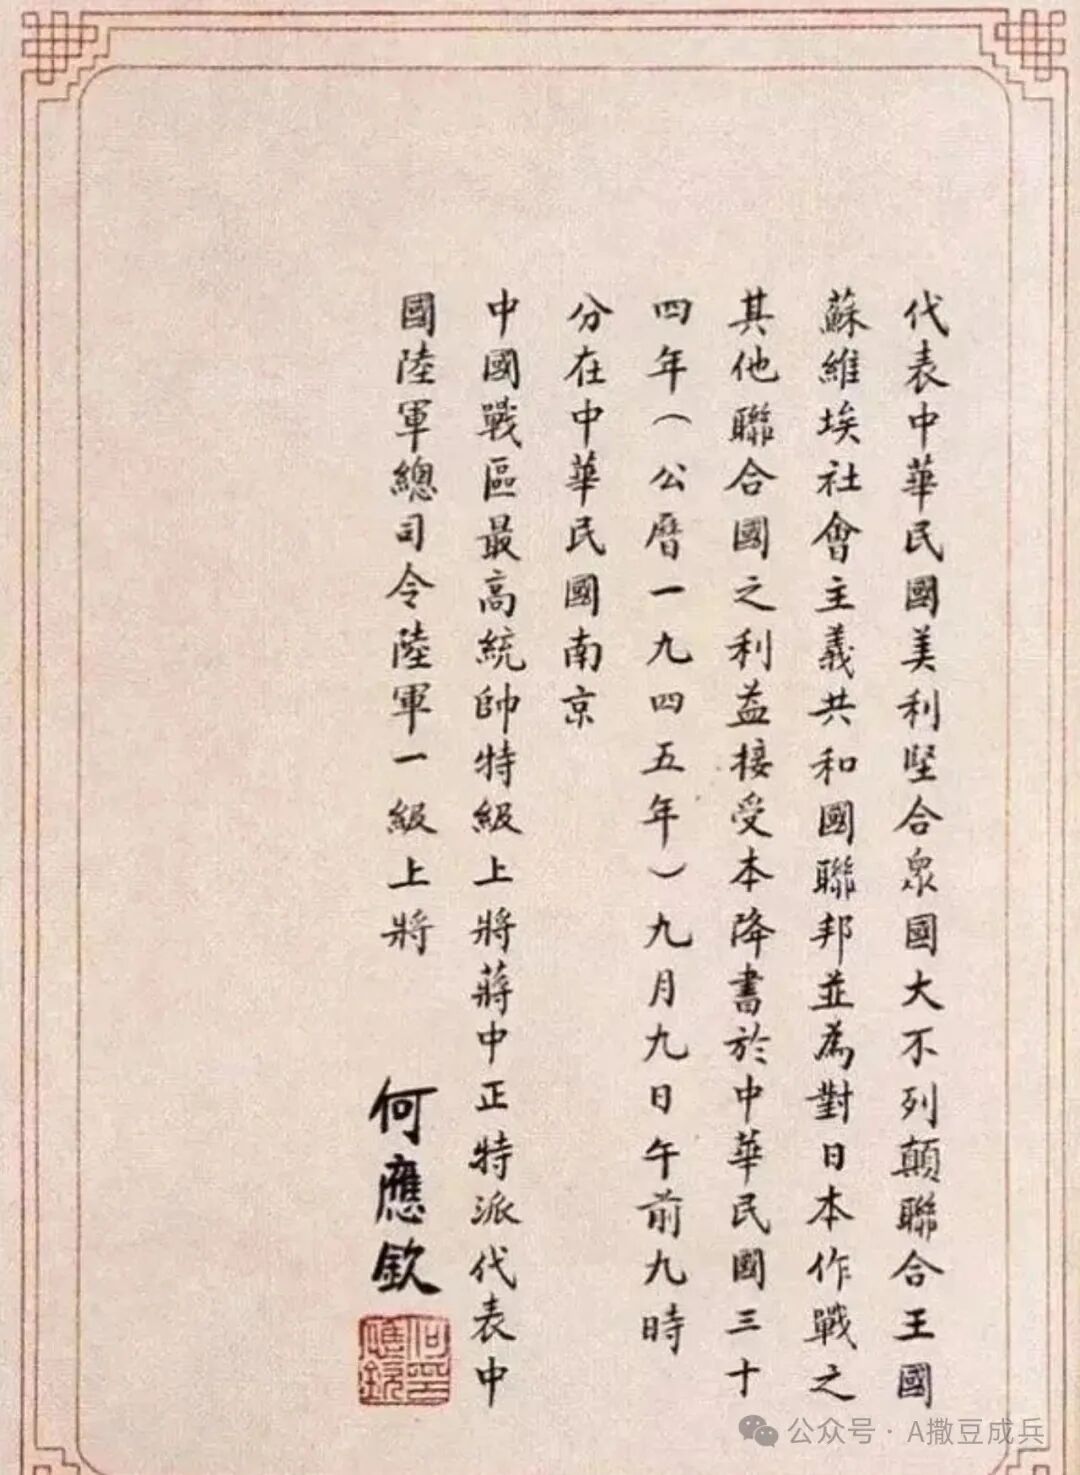 代表中華民國美利堅合衆國大不列顛聯合王國
蘇維埃社會主義共和國聯邦並為對日本作戰之
其他聯合國之利益接受本降書於中華民國三十
四年（公曆一九四五年）九月九日午前九時
分在中華民國南京
中國戰區最高統帥特級上將蔣中正特派代表中
國陸軍總司令陸軍一級上將
何應欽
何應欽印
公众号·A撒豆成兵